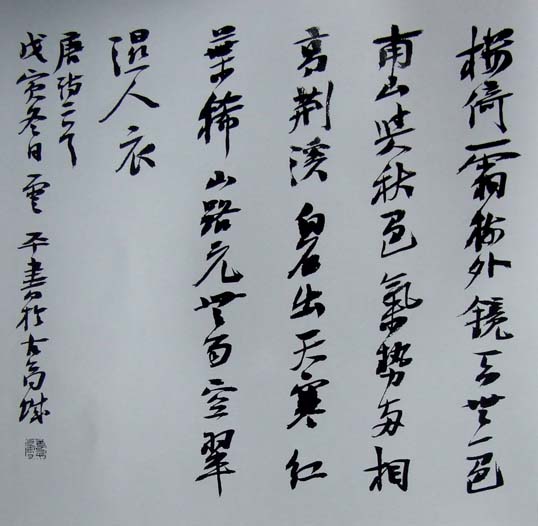 樓倚霜樹外鏡天無一色
南山與秋色氣勢兩相
高荆溪白石出天寒紅
葉稀山路元無雨空翠
濕人衣
唐詩二首
戊寅冬日雲平書於古高城